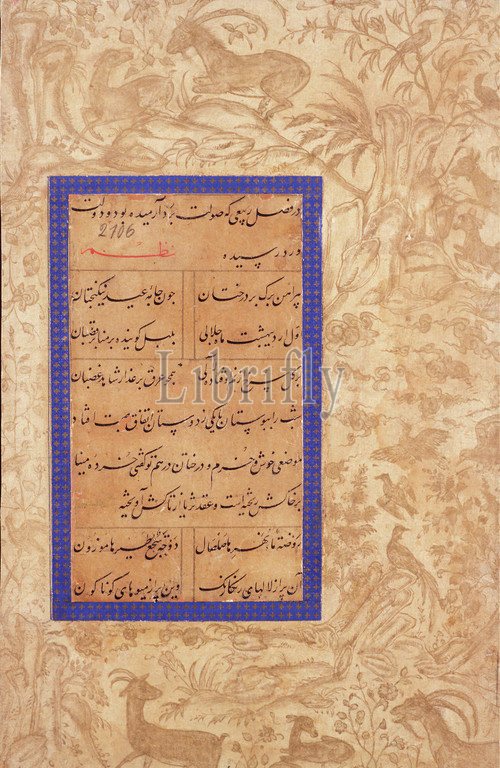 در فصل ربیعی که صولت برد آرمیده بود و دولت
2106
ورد رسیده نظم
پیراهن برگ بر درختان چون جامه عید نیکبختان
اول اردیبهشت ماه جلالی بلبل گوینده بر منابر قضبان
بر گل سرخ از نم اوفتاده لآلی همچو عرق بر عذار شاهد غضبان
شب را ببوستان با یکی از دوستان اتفاق مبیت افتاد
موضعی خوش و خرم و درختان درهم تو گفتی خرده مینا
بر خاکش ریخته است و عقد ثریا از تاکش آویخته
روضة ماء نهرها سلسال دوحة سجع طیرها موزون
آن پر از لالهای رنگارنگ وین پر از میوهای گوناگون
Librifly